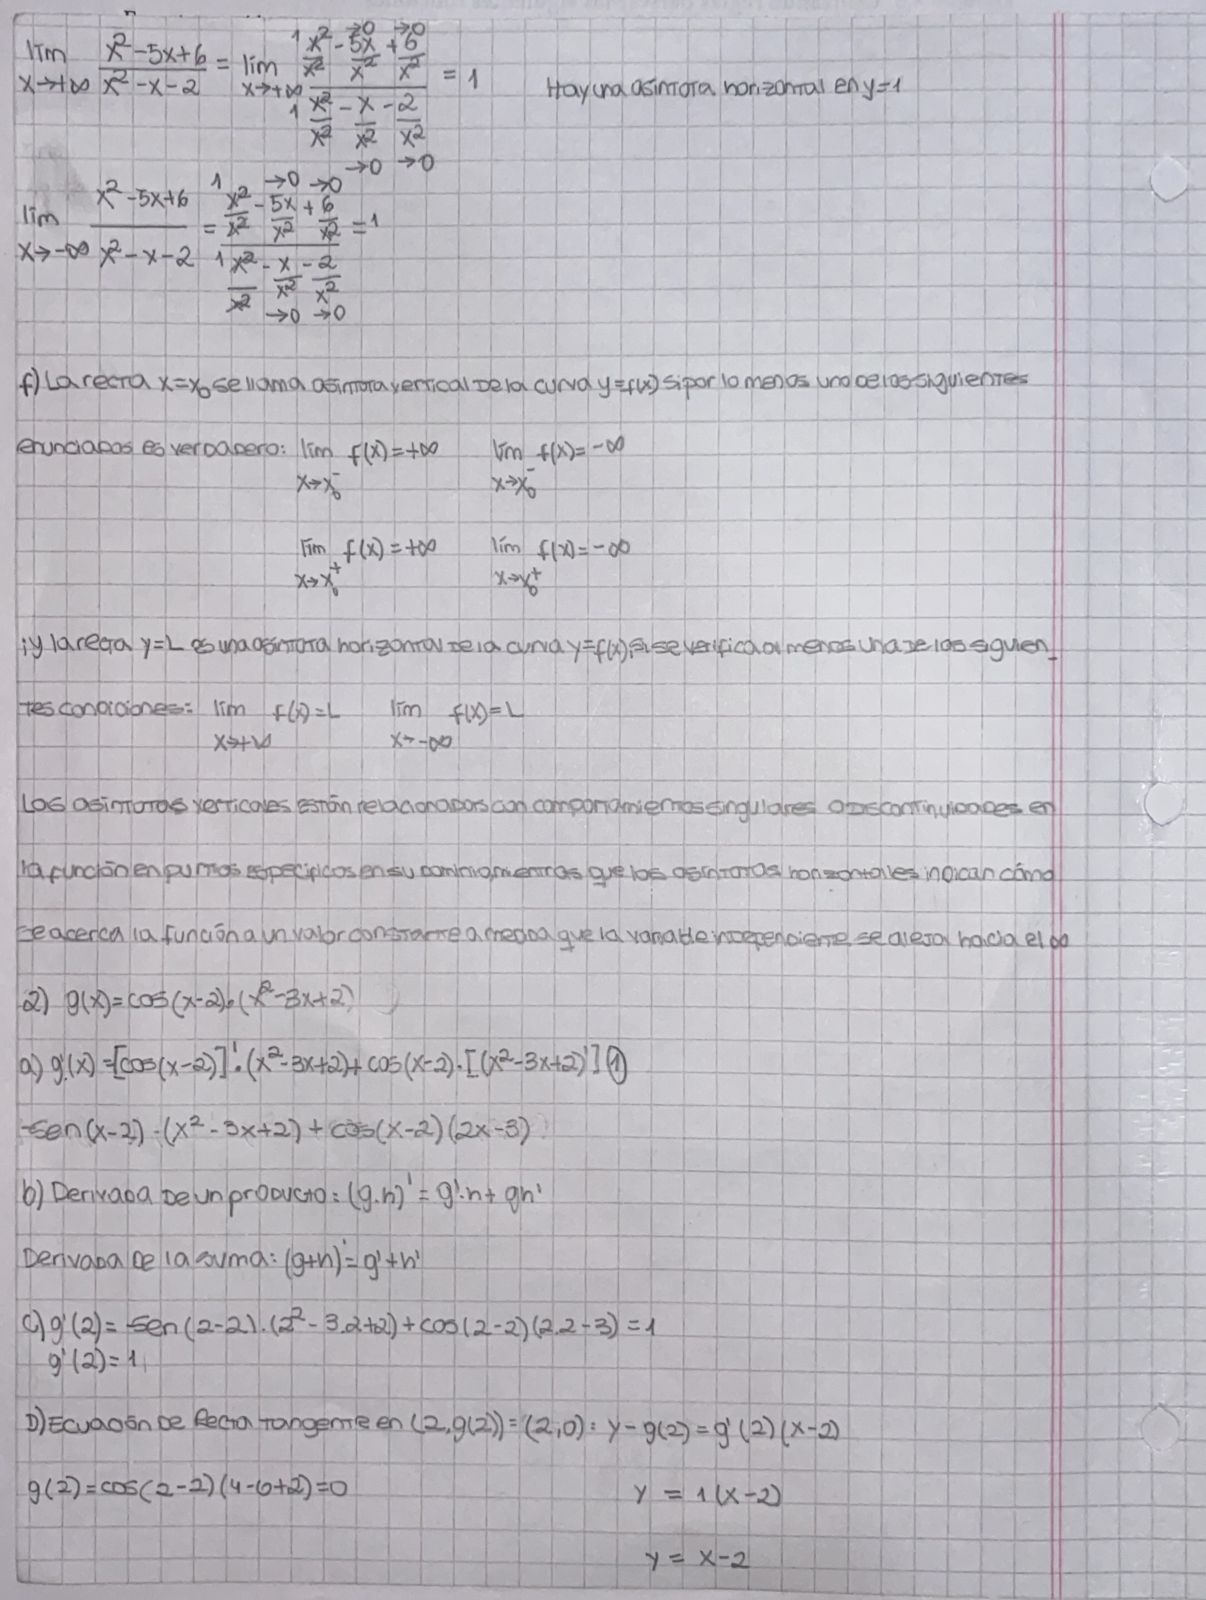 lim x→+∞ (x²-5x+6)/(x²-x-2) = lim x→+∞ (x²/x² - 5x/x² + 6/x²)/(x²/x² - x/x² - 2/x²) = 1 Hay una asintota horizontal en y=1
lim x→-∞ (x²-5x+6)/(x²-x-2) = (x²/x² - 5x/x² + 6/x²)/(x²/x² - x/x² - 2/x²) = 1
f) La recta x=x₀ se llama asintota vertical de la curva y=f(x) si por lo menos uno de los siguientes
enunciados es verdadero: lim x→x₀⁻ f(x)=+∞ lim x→x₀⁻ f(x)=-∞
lim x→x₀⁺ f(x)=+∞ lim x→x₀⁺ f(x)=-∞
; y la recta y=L es una asintota horizontal de la curva y=f(x) si se verifica al menos una de las siguien_
tes condiciones: lim x→+∞ f(x)=L lim x→-∞ f(x)=L
Las asintotas verticales están relacionadas con comportamientos singulares o discontinuidades en
la función en puntos específicos en su dominio, mientras que las asintotas horizontales indican cómo
se acerca la función a un valor constante a medida que la variable independiente se aleja hacia el ∞
2) g(x)=cos(x-2).(x²-3x+2)
a) g'(x)=[cos(x-2)]'.(x²-3x+2)+cos(x-2).[(x²-3x+2)'] ①
-sen(x-2).(x²-3x+2)+cos(x-2)(2x-3)
b) Derivada de un producto: (g.h)'=g'.h+gh'
Derivada de la suma: (g+h)'=g'+h'
c) g'(2)=-sen(2-2).(2²-3.2+2)+cos(2-2)(2.2-3)=1
g'(2)=1
D) Ecuación de Recta tangente en (2,g(2))=(2,0): y-g(2)=g'(2)(x-2)
g(2)=cos(2-2)(4-6+2)=0 y = 1(x-2)
y = x-2